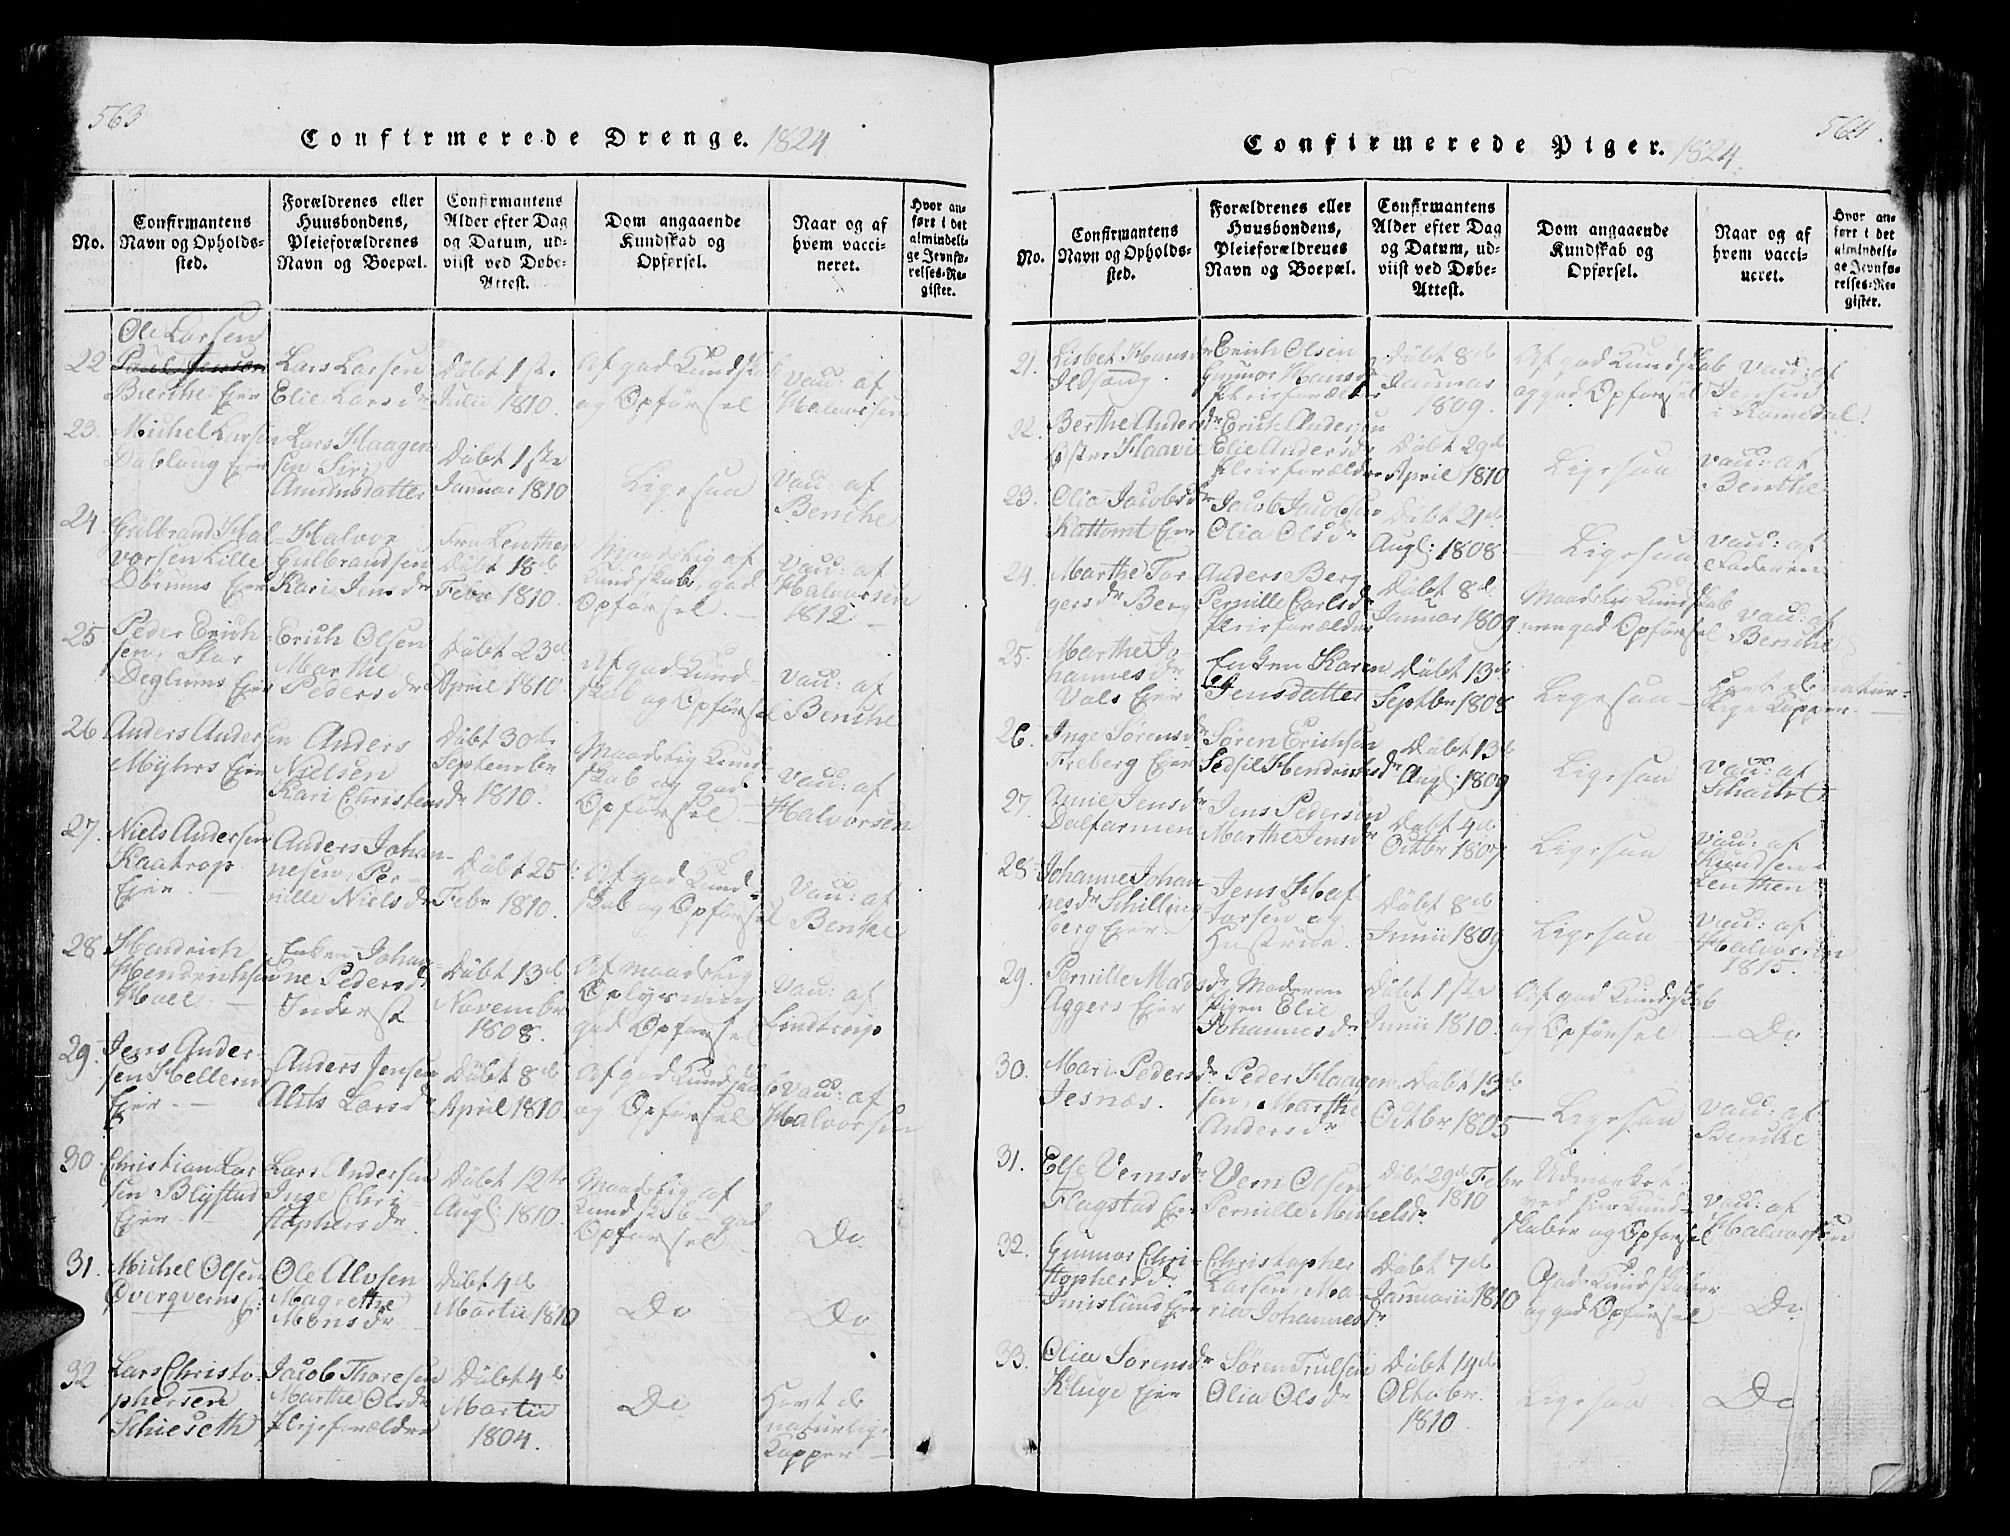 563
Confirmerede Drenge. 1824
No.
Confirmantens
Navn og Opholds-
sted.
Forældrenes eller
Huusbondens,
Pleieforældrenes
Navn og Boepæl.
Confirmantens
Alder efter Dag
og Datum, ud-
viist ved Døbe-
Attest.
Dom angaaende
Kundskab og
Opførsel.
Naar og af
hvem vacci-
neret.
Hvor an-
ført i det
almindeli-
ge Jevnfø-
relses-Re-
gister.
22
Ole Larsen
Bierthe Eier
Lars Larsen
Elie Larsdr
Døbt 1ste
Julii 1810.
Af god Kundskab
og Opførsel
Vacc: af
Halvorsen
23.
Michel Larsen
Eier
Lars Haagen-
sen Siri
Amunsdatter
Døbt 1ste
Januar 1810
Ligesaa
Vacc: af
Benche
24
Gulbrand Hal-
vorsen Lille
Eier
Halvor
Gulbrandsen
Kari Jensdr
fra Lenthen
Døbt 18de
Febr 1810.
Maadelig af
Kundskab, god
Opførsel. —
Vacc: af
Halvorsen
1812 —
25
Peder Erich-
sen, Stor
Deglums Eier
Erich Olsen
Marthe
Pedersdr
Døbt 23de
April 1810.
Af god Kund-
skab og Opførsel
Vacc: af
Benche
26
Anders Andersen
Myhrs Eier
Anders
Nielsen
Kari Christensdr
Døbt 30te
Septembr
1810.
Maadelig Kund-
skab og god
Opførsel. —
Vacc: af
Halvorsen
27.
Niels Andersen
Kaatrop
Eier. —
Anders Johan-
nesen, Per-
nille Nielsdr
Døbt 25de
Febr 1810.
Af god Kund-
skab og Opførsel
Vacc: af
Benche
28
Hendrich
Hendrichsen
Enken Johan-
ne Pedersdr
Inderst
Døbt 13de
Novembr
1808.
Af maadelig
Oplysning
god Opførsel
Vacc: af
Lindtorp
29.
Jens Ander-
sen Hellerud
Eier. —
Anders Jensen
Alits Larsdr
Døbt 8de
April 1810
Af god Kundskab
og Opførsel
Vacc: af
Halvorsen
30
Christian Lar-
sen Blystad
Eier
Lars Andersen
Inge Chri-
stophersdr
Døbt 12te
Augl: 1810.
Maadelig af
Kundskab god
Opførsel —
Do
31.
Michel Olsen
Overqverns E:
Ole Alvsen
Magrethe
Monsdr
Døbt 4de
Martii 1810
Do
Do
32
Lars Christo-
phersen
Schieseth
Jacob Thoresen
Marthe Olsdr
Plejeforældre
Døbt 4de
Martii
1804.
Do
Havt de
naturlige
Kopper —
564
Confirmerede Piger. 1824
No.
Confirmantens
Navn og Opholds-
sted.
Forældrenes eller
Huusbondens,
Pleieforældrenes
Navn og Boepæl.
Confirmantens
Alder efter Dag
og Datum, ud-
viist ved Døbe-
Attest.
Dom angaaende
Kundskab og
Opførsel.
Naar og af
hvem vacci-
neret.
Hvor an-
ført i det
almindeli-
ge Jevnfø-
relses-Re-
gister.
21.
Lisbet Hansdr
Ildsang.
Erich Olsen
Gunnor Hansdr
Pleieforældre
Døbt 8de
Januar
1809.
Af god Kundskab
og god Opførsel
Vacc: af
Jensen
i Romedal.
22.
Berthe Andersdr
Øster Haavie
Erich Andersen
Elie Andersdr
Pleieforældre
Døbt 29de
April 1810
Ligesaa
Vacc: af
Benche
23.
Olia Jacobsdr
Eier
Jacob Jacobsen
Olia Olsdr
Døbt 21de
Augl: 1808
— Ligesaa
Vacc: af
Faderen
24.
Marthe Tor-
gersdr Berg
Anders Berg
Pernille Carlsdr
Pleieforældre
Døbt 8de
Januar 1809
Maadelig Kundskab
men god Opførsel
Vacc: af
Benche
25.
Marthe Jo-
hannesdr
Vals Eier
Enken Karen
Jensdatter
Døbt 13de
Septbr 1808
Ligesaa —
Havt de natur-
lige Kopper —
26.
Inge Sørensdr
Freberg Eier
Søren Erichsen
Sedsil Hendrichsdr
Døbt 13de
Augl: 1809
Ligesaa
Vacc: af
Schacht
27.
Anne Jensdr
Dalfarmen
Jens Pedersen
Marthe Jensdr
Døbt 4de
Octbr 1807
Ligesaa
Vacc: af
Knudsen
Lenthen
28
Johanne Johan-
nesdr Schilling-
berg Eier
Jens Haf-
torsen og
Hustrue.
Døbt 8de
Junii 1809
Ligesaa
Vacc: af
Halvorsen
1815.
29.
Pernille Madsdr
Aggers Eier
Moderen
Pigen Elie
Johannesdr
Døbt 1ste
Junii 1810.
Af god Kundskab
og Opførsel
Do
30.
Mari Pedersdr
Jesnæs.
Peder Haagen-
sen, Marthe
Andersdr
Døbt 13de
Octbr 1805
— Ligesaa
Vacc: af
Benche
31.
Else Vernsdr
Flagstad Eier
Vern Olsen
Pernille Michelsdr
Døbt 29de Febr
1810
Udmærket
ved sin Kund-
skaber og Opførsel
Vacc: af
Halvorsen
32.
Gunnor Chri-
stophersdr
Imislund Eier
Christopher
Larsen, Ma-
ria Johannesdr
Døbt 7de
Januarii 1810
Gode Kundskaber
og god Opførsel
Do.
33.
Olia Sørensdr
Kluge Eier
Søren Trulsen
Olia Olsdr
Døbt 14de
Octobr.
1810
Ligesaa
Do